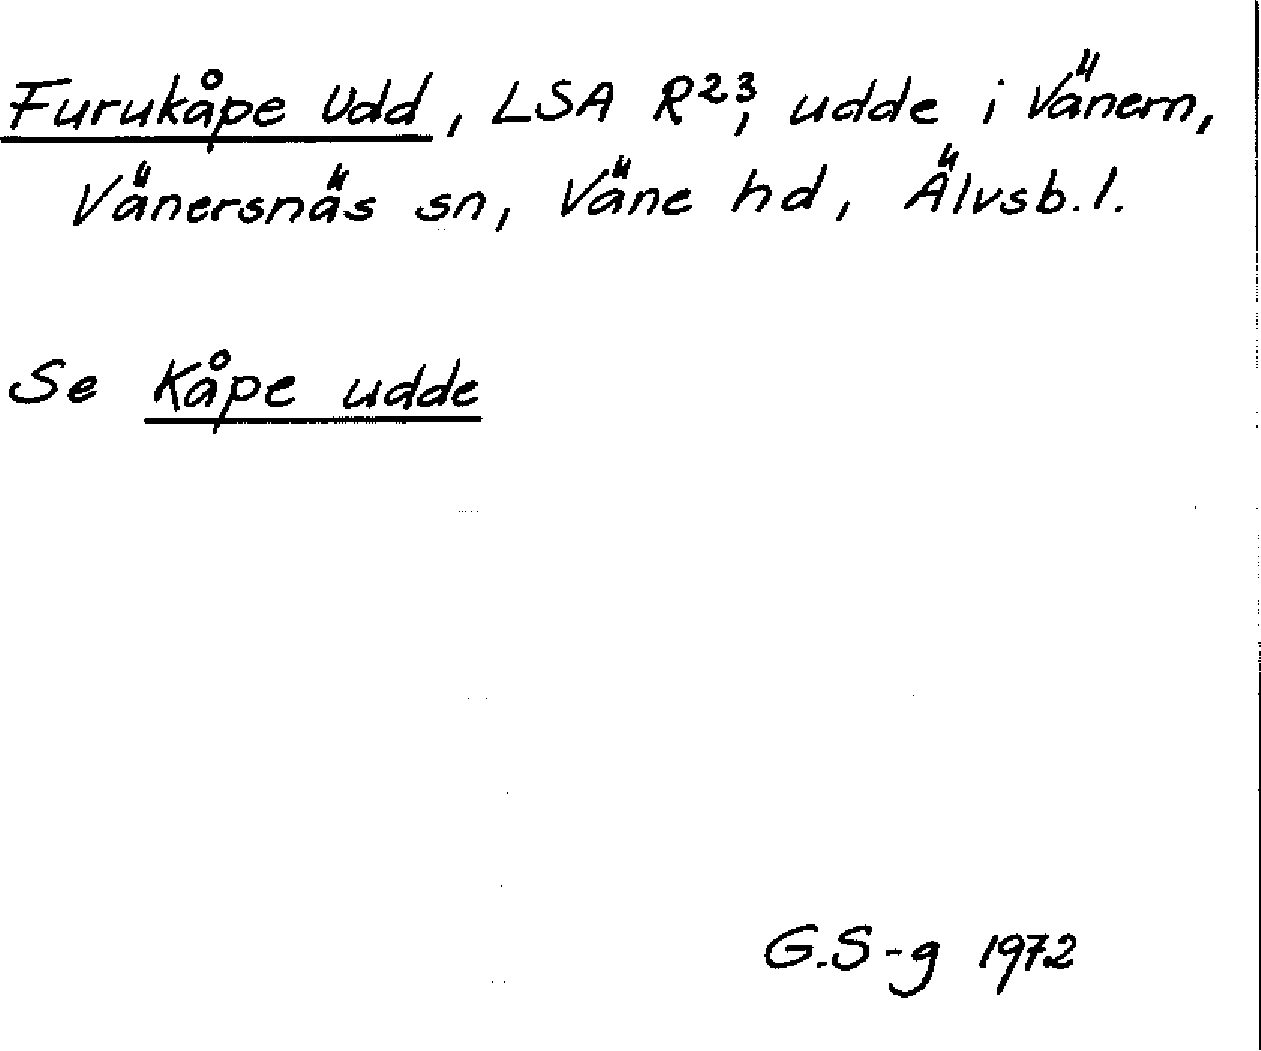 Furukåpe Udd, LSA R²³, udde i Vänern,
Vänersnäs sn, Väne hd, Älvsb. l.
Se Kåpe udde
G.S-g 1972